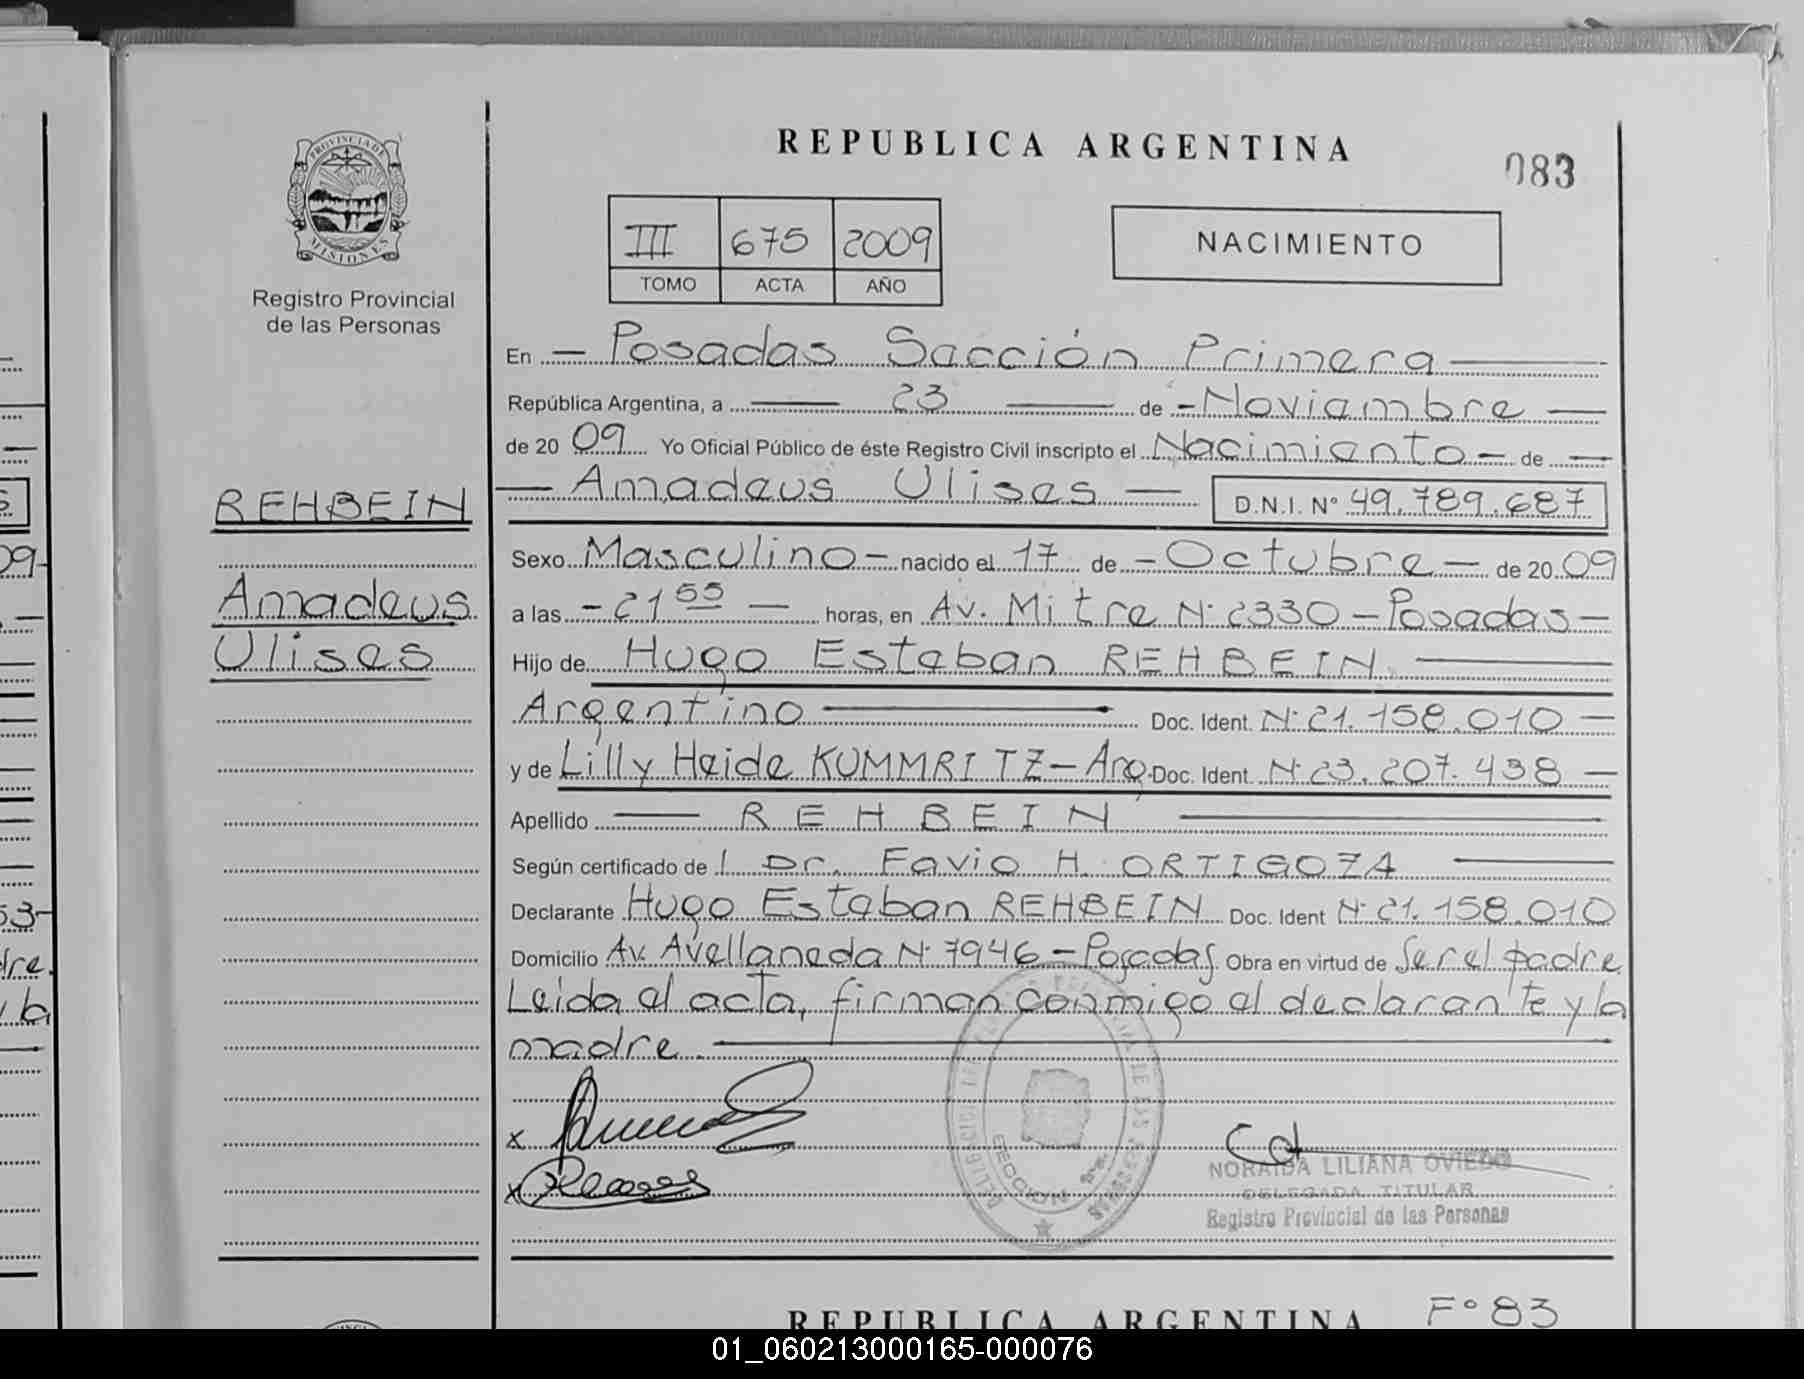 REPUBLICA ARGENTINA
083
PROVINCIA DE
MISIONES
Registro Provincial
de las Personas
III 675 2009
TOMO ACTA AÑO
NACIMIENTO
En Posadas Sección Primera
República Argentina, a 23 de Noviembre
de 20 09 Yo Oficial Público de éste Registro Civil inscripto el Nacimiento de
Amadeus Ulises D.N.I. Nº 49.789.687
REHBEIN
Amadeus
Ulises
Sexo Masculino nacido el 17 de Octubre de 20 09
a las 21 55 horas, en Av. Mitre Nº 2330 - Posadas
Hijo de Hugo Esteban REHBEIN
Argentino Doc. Ident. Nº 21.158.010
y de Lilly Heide KUMMRITZ - Arg. Doc. Ident. Nº 23.207.438
Apellido REHBEIN
Según certificado de l Dr. Favio H. ORTIGOZA
Declarante Hugo Esteban REHBEIN Doc. Ident Nº 21.158.010
Domicilio Av. Avellaneda Nº 7946 - Posadas Obra en virtud de Ser el padre
Leida el acta, firman conmigo el declarante y la
madre.
x
x
NORAIDA LILIANA OVIEDO
DELEGADA TITULAR
Registro Provincial de las Personas
REPUBLICA ARGENTINA Fº 83
01_060213000165-000076